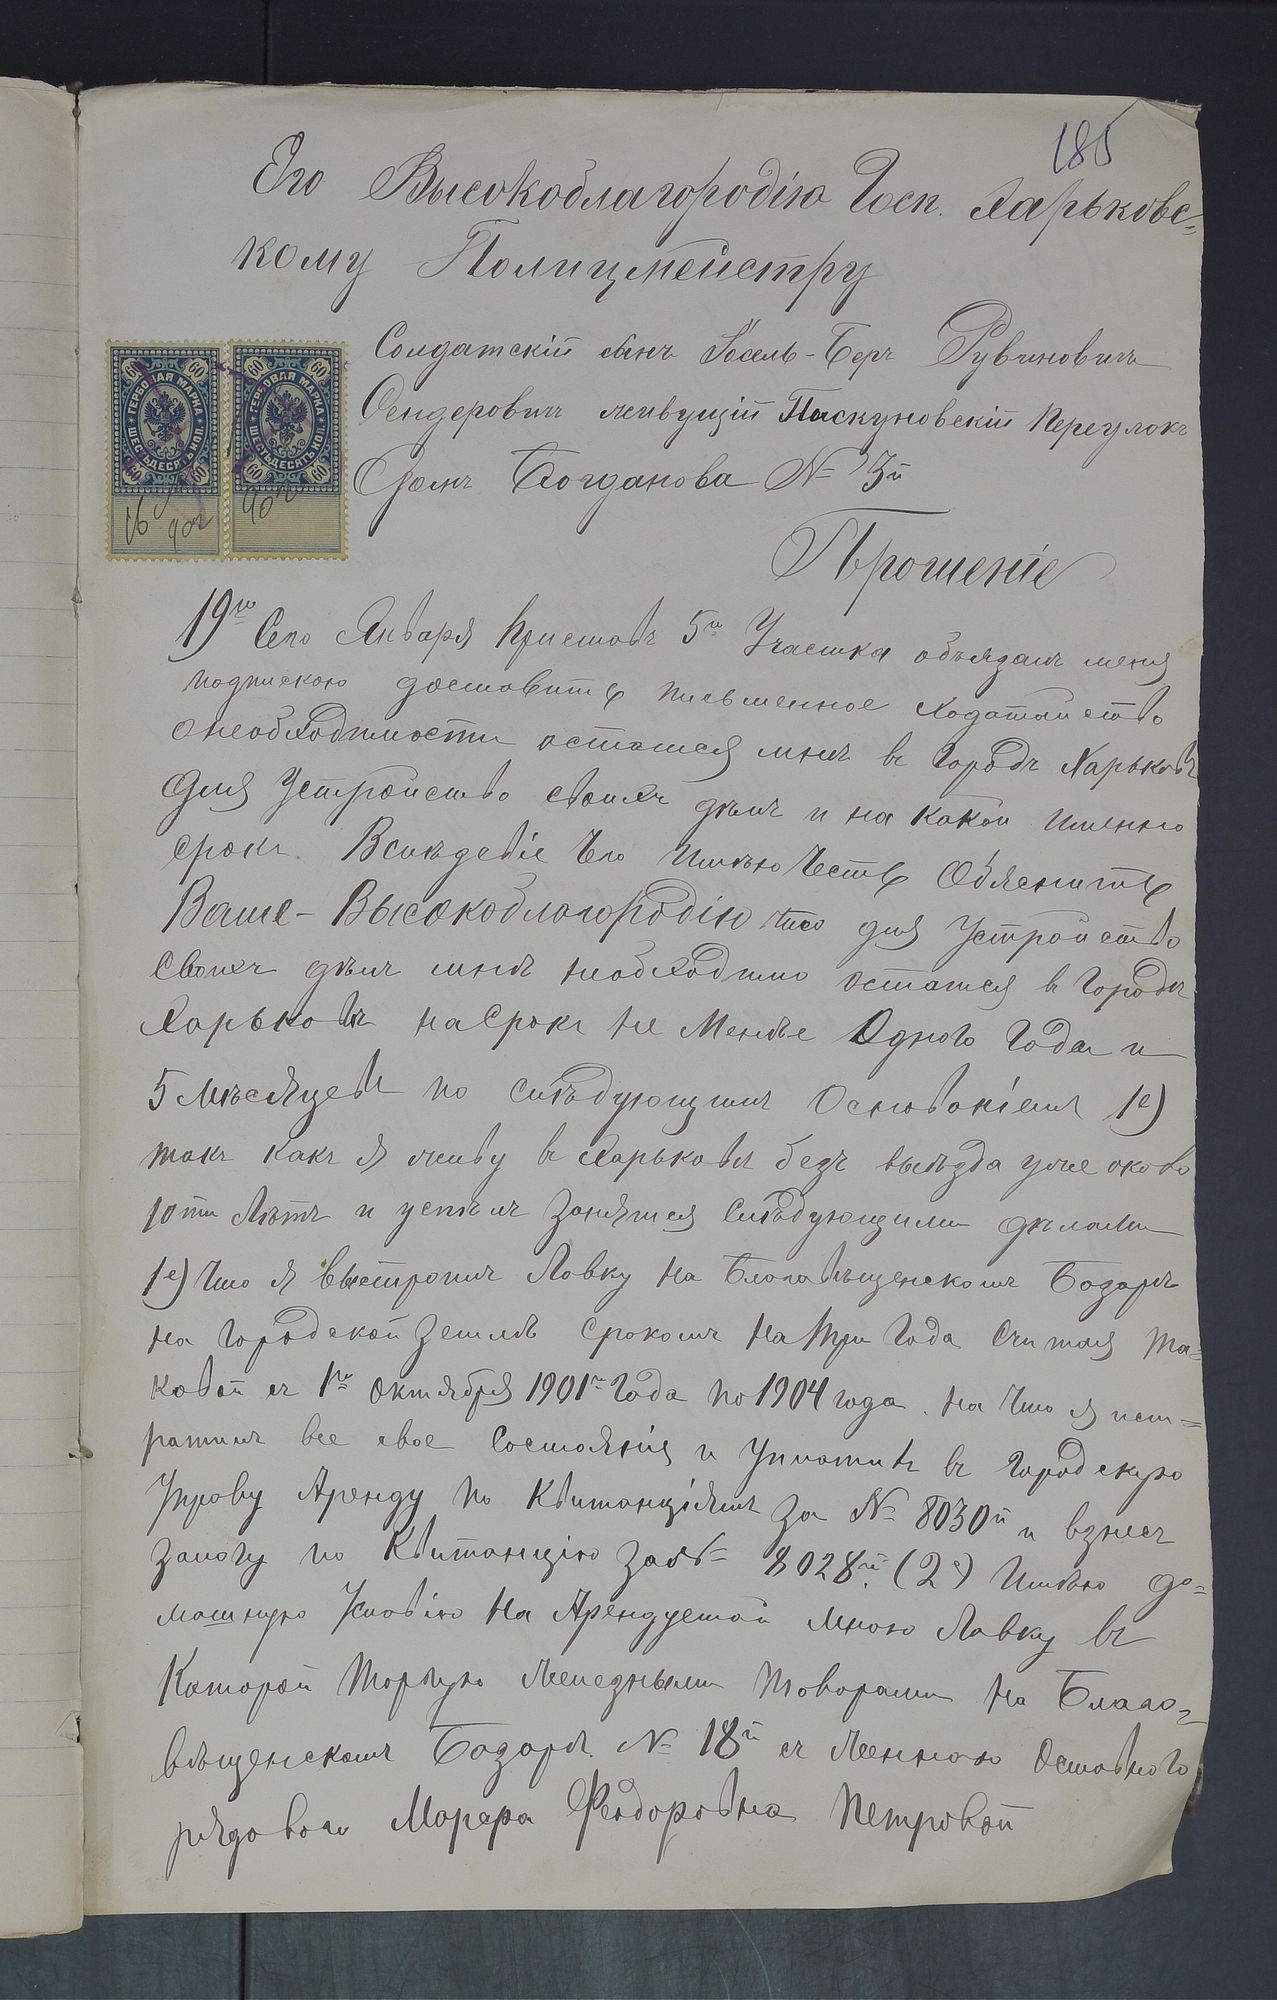 185
Его Высокоблагородію Госп. Харьковс=
кому Полицмейстру
Солдатскій сынъ Іосель-Беръ Рувиновичъ
Сендеровичъ живущій Пискуновскій Переулокъ
Домъ Богданова № 3й
ГЕРБОВАЯ МАРКА ШЕСТЬДЕСЯТЪ КОП. 60
ГЕРБОВАЯ МАРКА ШЕСТЬДЕСЯТЪ КОП. 60
Прошеніе
19го Сего Января Приставъ 5го Участка обьязалъ меня
подпискою доставить письменное ходатайство
онеобходимости остатся мнѣ въ Городѣ Харьковѣ
для Устройство своихъ дѣлъ и на какой именно
срокъ. Вслѣдствіе Чего Имѣю Честь Обяснить
Ваше-Высокоблагородію что для Устройство
Своихъ дѣлъ мнѣ необходимо остатся въ Городѣ
Харьковѣ на Срокъ не Менѣе Одного Года и
5 Мѣсяцевъ по слѣдующимъ Основаніемъ 1е)
такъ какъ я живу въ Харьковѣ безъ выѣзда уже около
10ти Лѣтъ и успѣлъ Занятся Слѣдующими дѣлами
1е) Что я Выстроилъ Лавку на Благовѣщенскомъ Базарѣ
на Городской Землѣ срокомъ на три Года Считая та=
ковой съ 1го Октября 1901го Года по 1904 года. на Что я ист=
ратилъ все свое Состоянія и Уплатилъ въ Городскую
Управу Аренду по Квитанціямъ За № 8030й и взнесъ
Залогу по Квитанцію За № 8028й. (2е) Имѣю до=
машнюю Условію на Арендуемой мною Лавку въ
Которой торгую Желѣзными товарами на Благо=
вѣщенскомъ Базарѣ. № 18й съ Женною Оставного
рядового Марфа Феодоровна Петровой